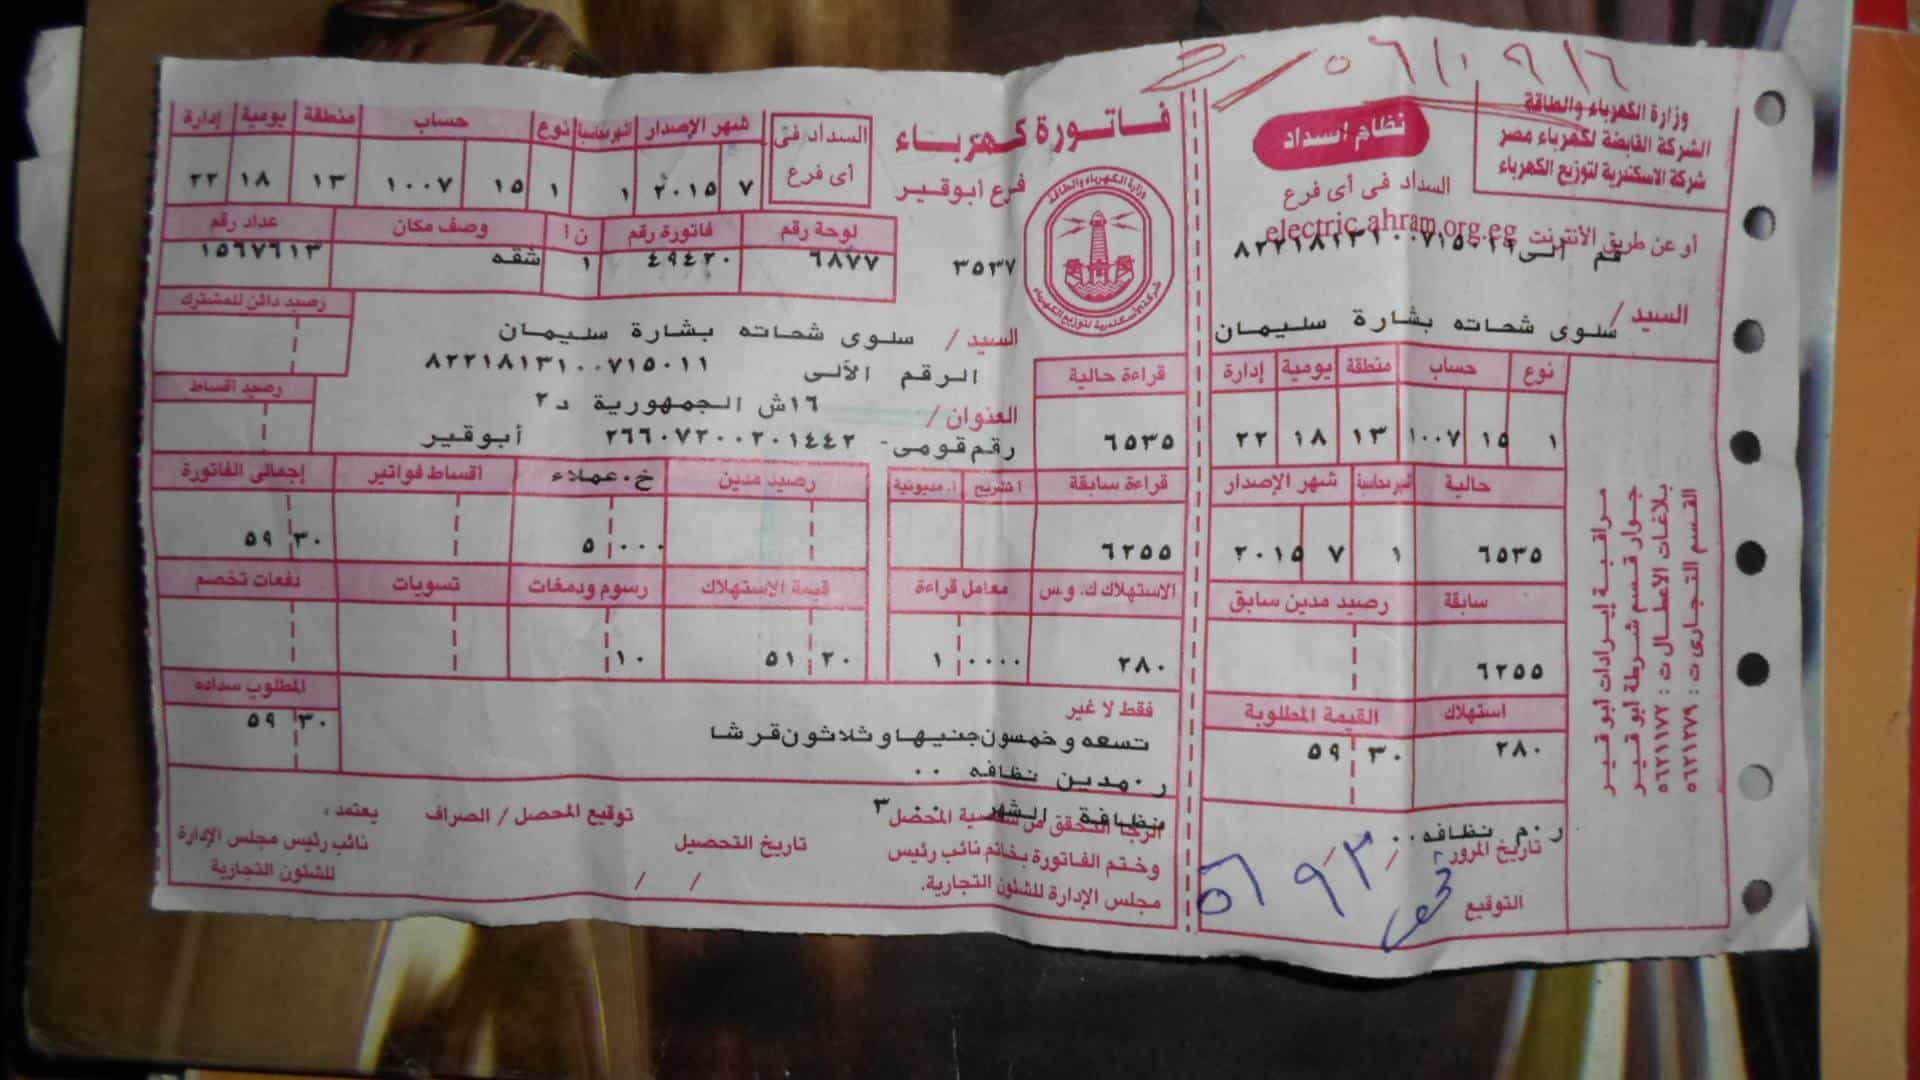 وزارة الكهرباء والطاقة
الشركة القابضة لكهرباء مصر
شركة الاسكندرية لتوزيع الكهرباء
نظام اسداد
السداد فى أى فرع
أو عن طريق الأنترنت electric.ahram.org.eg
السيد / سلوى شحاته بشارة سليمان
نوع حساب منطقة يومية إدارة
١ ١٥ ١٠٠٧ ١٣ ١٨ ٢٢
حالية شهر الإصدار
٦٥٣٥ ١ ٧ ٢٠١٥
سابقة رصيد مدين سابق
٦٢٥٥
استهلاك القيمة المطلوبة
٢٨٠ ٣٠ ٥٩
ر.م نظافه ٠٠
تاريخ المرور
التوقيع
مراقبة إيرادات ابو قير
جوار قسم شرطة ابو قير
بلاغات الأعطال ت : ٥٦٢١١٧٢
القسم التجارى ت : ٥٦٢١٢٧٩
فاتورة كهرباء
فرع ابوقير
وزارة الكهرباء والطاقة
شركة الاسكندرية لتوزيع الكهرباء
٣٥٣٧
السداد فى
أى فرع
شهر الإصدار نوع حساب منطقة يومية إدارة
٧ ٢٠١٥ ١ ١ ١٥ ١٠٠٧ ١٣ ١٨ ٢٢
لوحة رقم فاتورة رقم ن أ وصف مكان عداد رقم
٦٨٧٧ ٤٩٤٢٠ ١ شقه ١٥٦٧٦١٣
رصيد دائن للمشترك
السيد / سلوى شحاته بشارة سليمان
الرقم الألى ٨٢٢١٨١٣١٠٠٧١٥٠١١
رصيد اقساط
العنوان / ١٦ش الجمهورية د٢
رقم قومى- ٢٦٦٠٧٢٠٠٢٠١٤٤٢ أبوقير
قراءة حالية
٦٥٣٥
قراءة سابقة ا. مديونية رصيد مدين خ.عملاء اقساط فواتير إجمالى الفاتورة
٦٢٥٥ ٥ ٠٠٠ ٣٠ ٥٩
الاستهلاك ك. و.س معامل قراءة قيمة الاستهلاك رسوم ودمغات تسويات دفعات تخصم
٢٨٠ ١ ٠٠٠٠ ٢٠ ٥١ ١٠
المطلوب سداده
٣٠ ٥٩
فقط لا غير
تسعه وخمسون جنيها وثلاثون قرشا
ر.مدين نظافه ٠٠
نظافة الشهر ٣
الرجا التحقق من شخصية المحصل
وختم الفاتورة بخاتم نائب رئيس
مجلس الإدارة للشئون التجارية.
تاريخ التحصيل
/ /
توقيع المحصل / الصراف
يعتمد ،
نائب رئيس مجلس الإدارة
للشئون التجارية